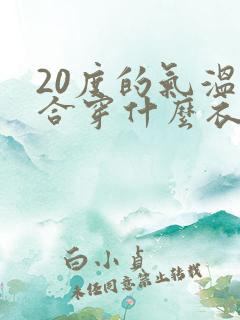 20度的氣溫
合穿什麼衣
白小貞
未經同意禁止轉載